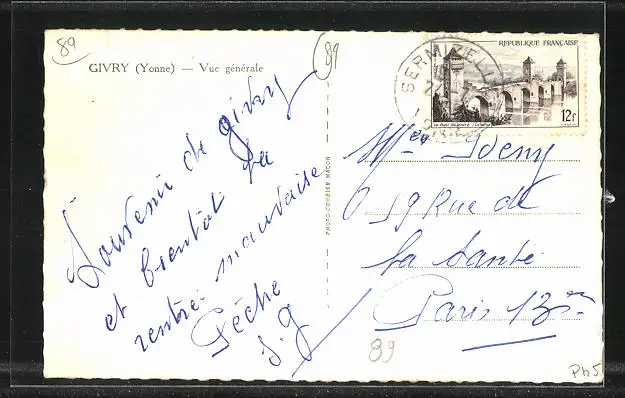 89
GIVRY (Yonne) — Vue générale
89
Souvenir de givry
et bientôt la
rentrée mauvaise
Pêche
J. g
PHOTO-COMBIER MACON
SERMIZELLES
REPUBLIQUE FRANÇAISE
12F
19 Rue de
la Santé
Paris 13
89
Ph5